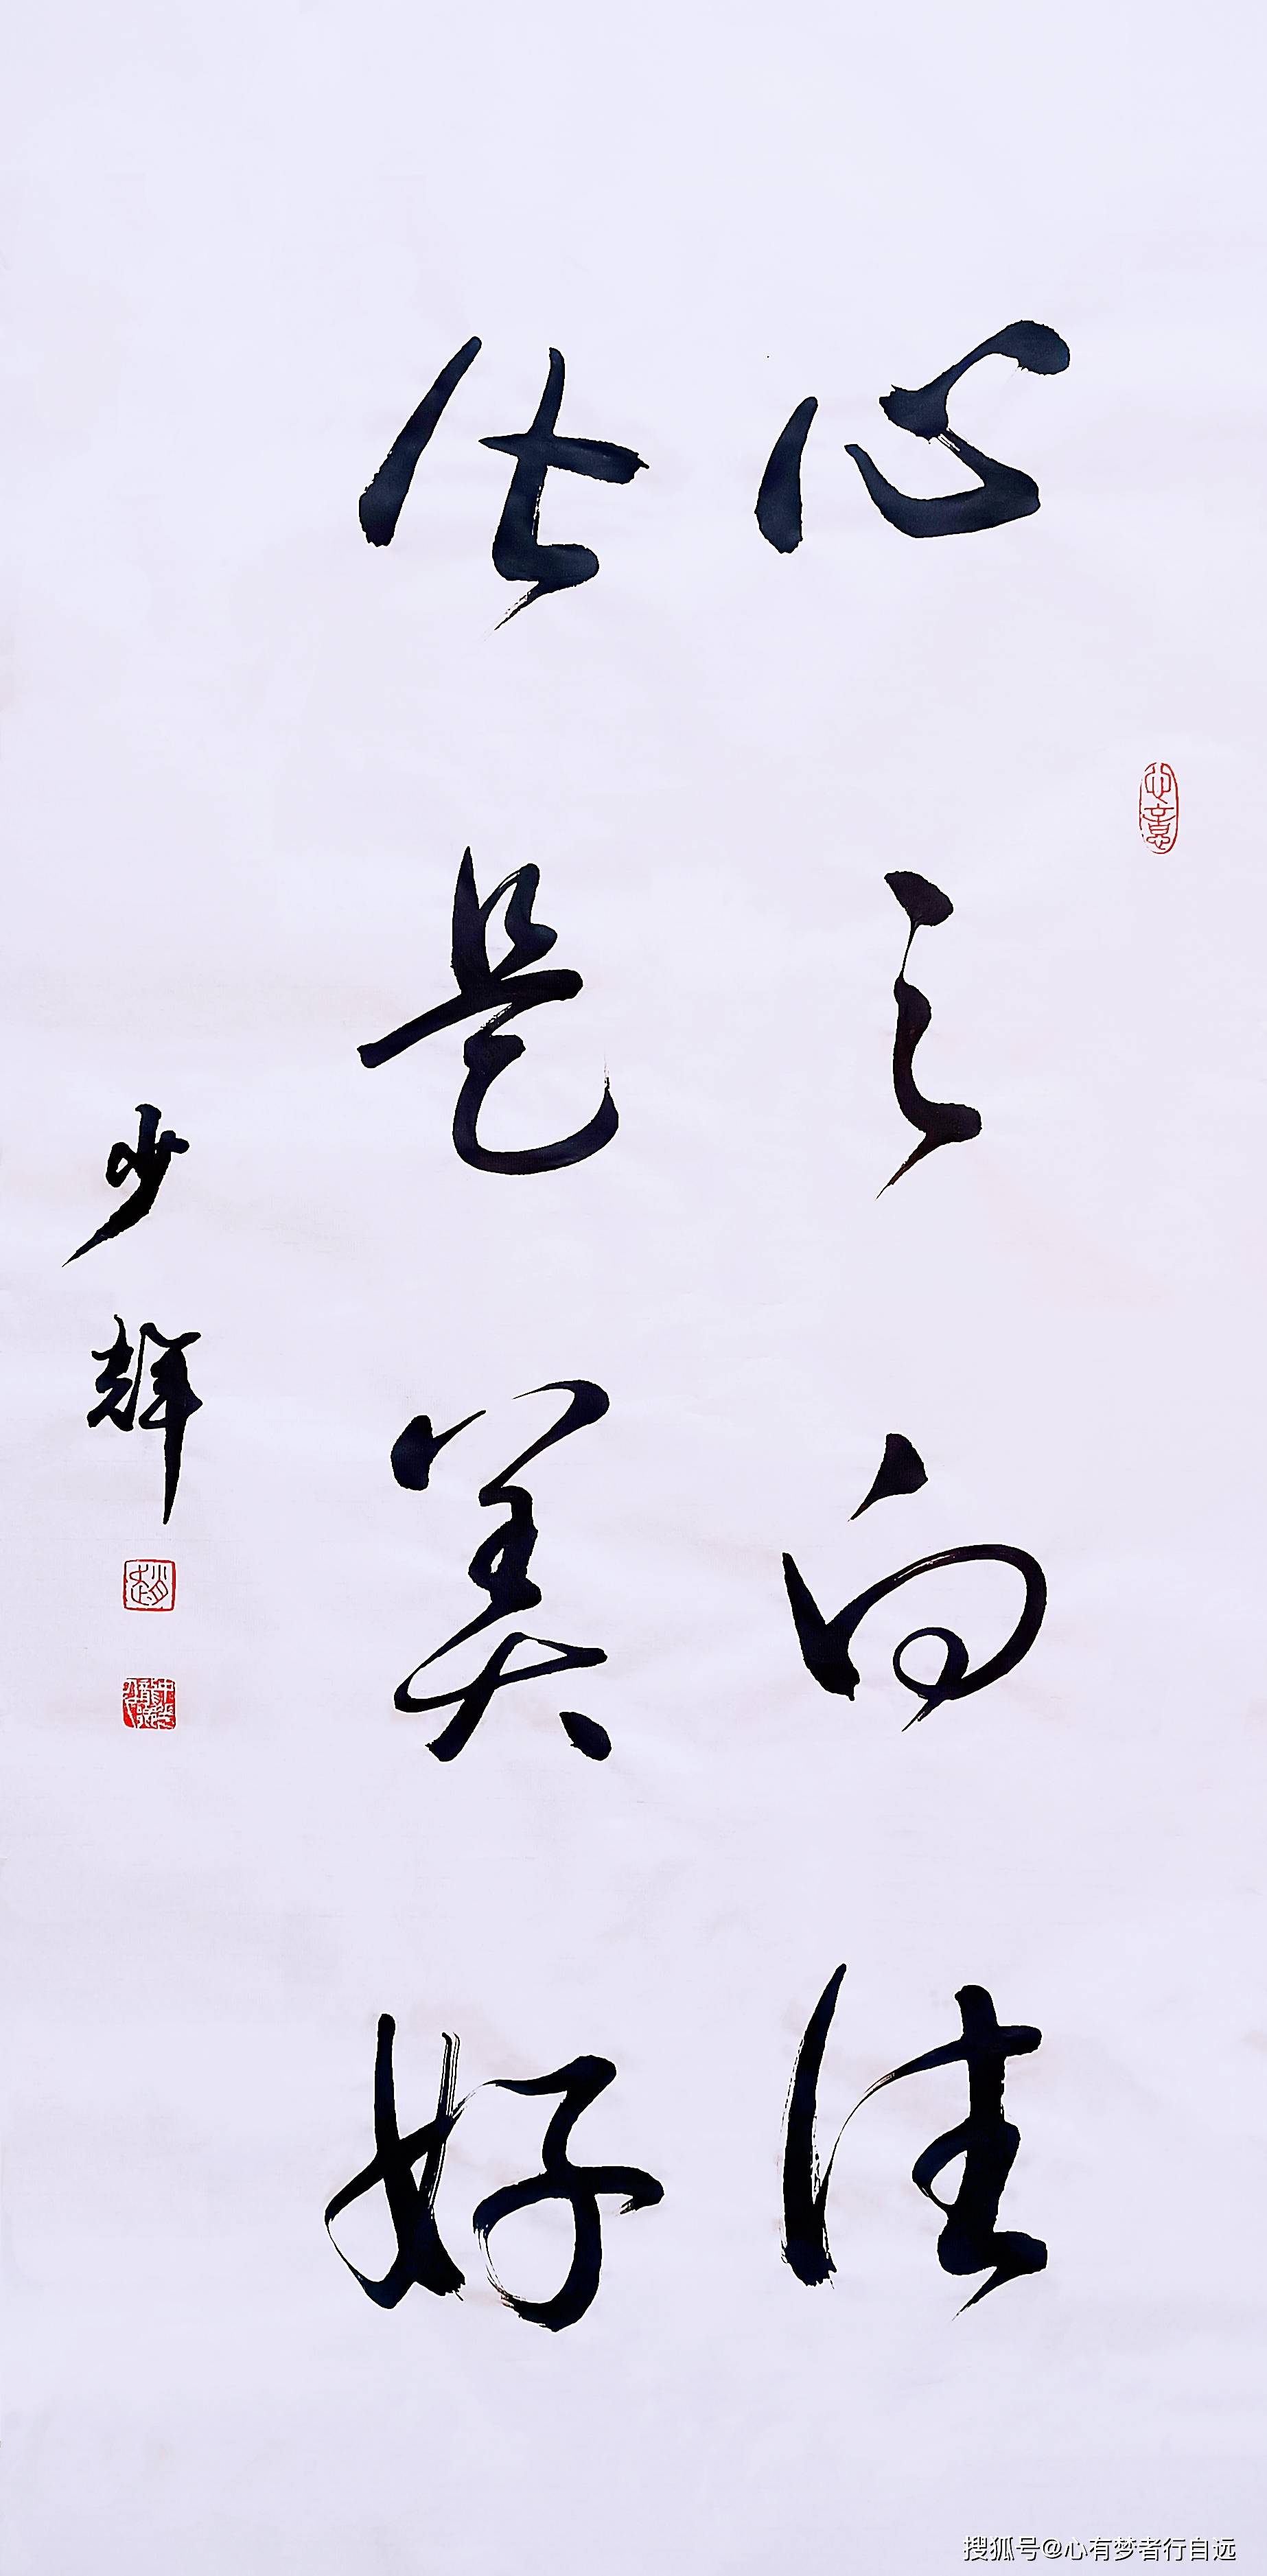 心之向往
是美好
少辉
心意
搜狐号@心有梦者行自远